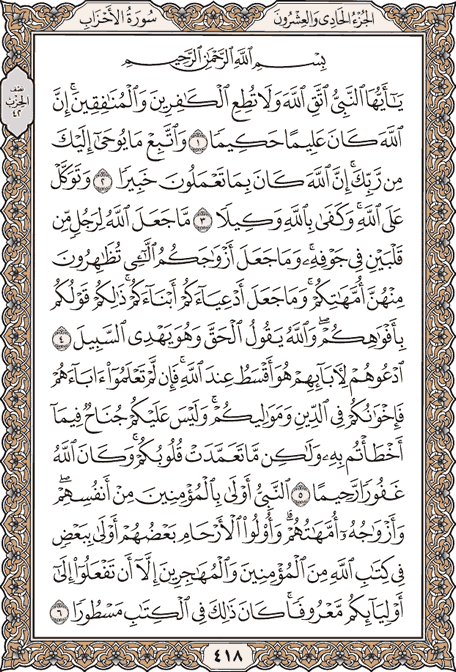 سُورَةُ الأَحْزَابِ
الجُزْءُ الحَادِى وَالعِشْرُونَ
نصف
الحزب
٤٢
بِسْمِ ٱللَّهِ ٱلرَّحْمَٰنِ ٱلرَّحِيمِ
يَـٰٓأَيُّهَا ٱلنَّبِىُّ ٱتَّقِ ٱللَّهَ وَلَا تُطِعِ ٱلْكَـٰفِرِينَ وَٱلْمُنَـٰفِقِينَ ۗ إِنَّ
ٱللَّهَ كَانَ عَلِيمًا حَكِيمًا ١ وَٱتَّبِعْ مَا يُوحَىٰٓ إِلَيْكَ
مِن رَّبِّكَ ۚ إِنَّ ٱللَّهَ كَانَ بِمَا تَعْمَلُونَ خَبِيرًا ٢ وَتَوَكَّلْ
عَلَى ٱللَّهِ ۚ وَكَفَىٰ بِٱللَّهِ وَكِيلًا ٣ مَّا جَعَلَ ٱللَّهُ لِرَجُلٍ مِّن
قَلْبَيْنِ فِى جَوْفِهِۦ ۚ وَمَا جَعَلَ أَزْوَٰجَكُمُ ٱلَّـٰٓـِٔى تُظَـٰهِرُونَ
مِنْهُنَّ أُمَّهَـٰتِكُمْ ۚ وَمَا جَعَلَ أَدْعِيَآءَكُمْ أَبْنَآءَكُمْ ۚ ذَٰلِكُمْ قَوْلُكُم
بِأَفْوَٰهِكُمْ ۖ وَٱللَّهُ يَقُولُ ٱلْحَقَّ وَهُوَ يَهْدِى ٱلسَّبِيلَ ٤
ٱدْعُوهُمْ لِـَٔابَآئِهِمْ هُوَ أَقْسَطُ عِندَ ٱللَّهِ ۚ فَإِن لَّمْ تَعْلَمُوٓا۟ ءَابَآءَهُمْ
فَإِخْوَٰنُكُمْ فِى ٱلدِّينِ وَمَوَٰلِيكُمْ ۚ وَلَيْسَ عَلَيْكُمْ جُنَاحٌ فِيمَآ
أَخْطَأْتُم بِهِۦ وَلَـٰكِن مَّا تَعَمَّدَتْ قُلُوبُكُمْ ۚ وَكَانَ ٱللَّهُ
غَفُورًا رَّحِيمًا ٥ ٱلنَّبِىُّ أَوْلَىٰ بِٱلْمُؤْمِنِينَ مِنْ أَنفُسِهِمْ ۖ
وَأَزْوَٰجُهُۥٓ أُمَّهَـٰتُهُمْ ۗ وَأُو۟لُوا۟ ٱلْأَرْحَامِ بَعْضُهُمْ أَوْلَىٰ بِبَعْضٍ
فِى كِتَـٰبِ ٱللَّهِ مِنَ ٱلْمُؤْمِنِينَ وَٱلْمُهَـٰجِرِينَ إِلَّآ أَن تَفْعَلُوٓا۟ إِلَىٰٓ
أَوْلِيَآئِكُم مَّعْرُوفًا ۚ كَانَ ذَٰلِكَ فِى ٱلْكِتَـٰبِ مَسْطُورًا ٦
٤١٨